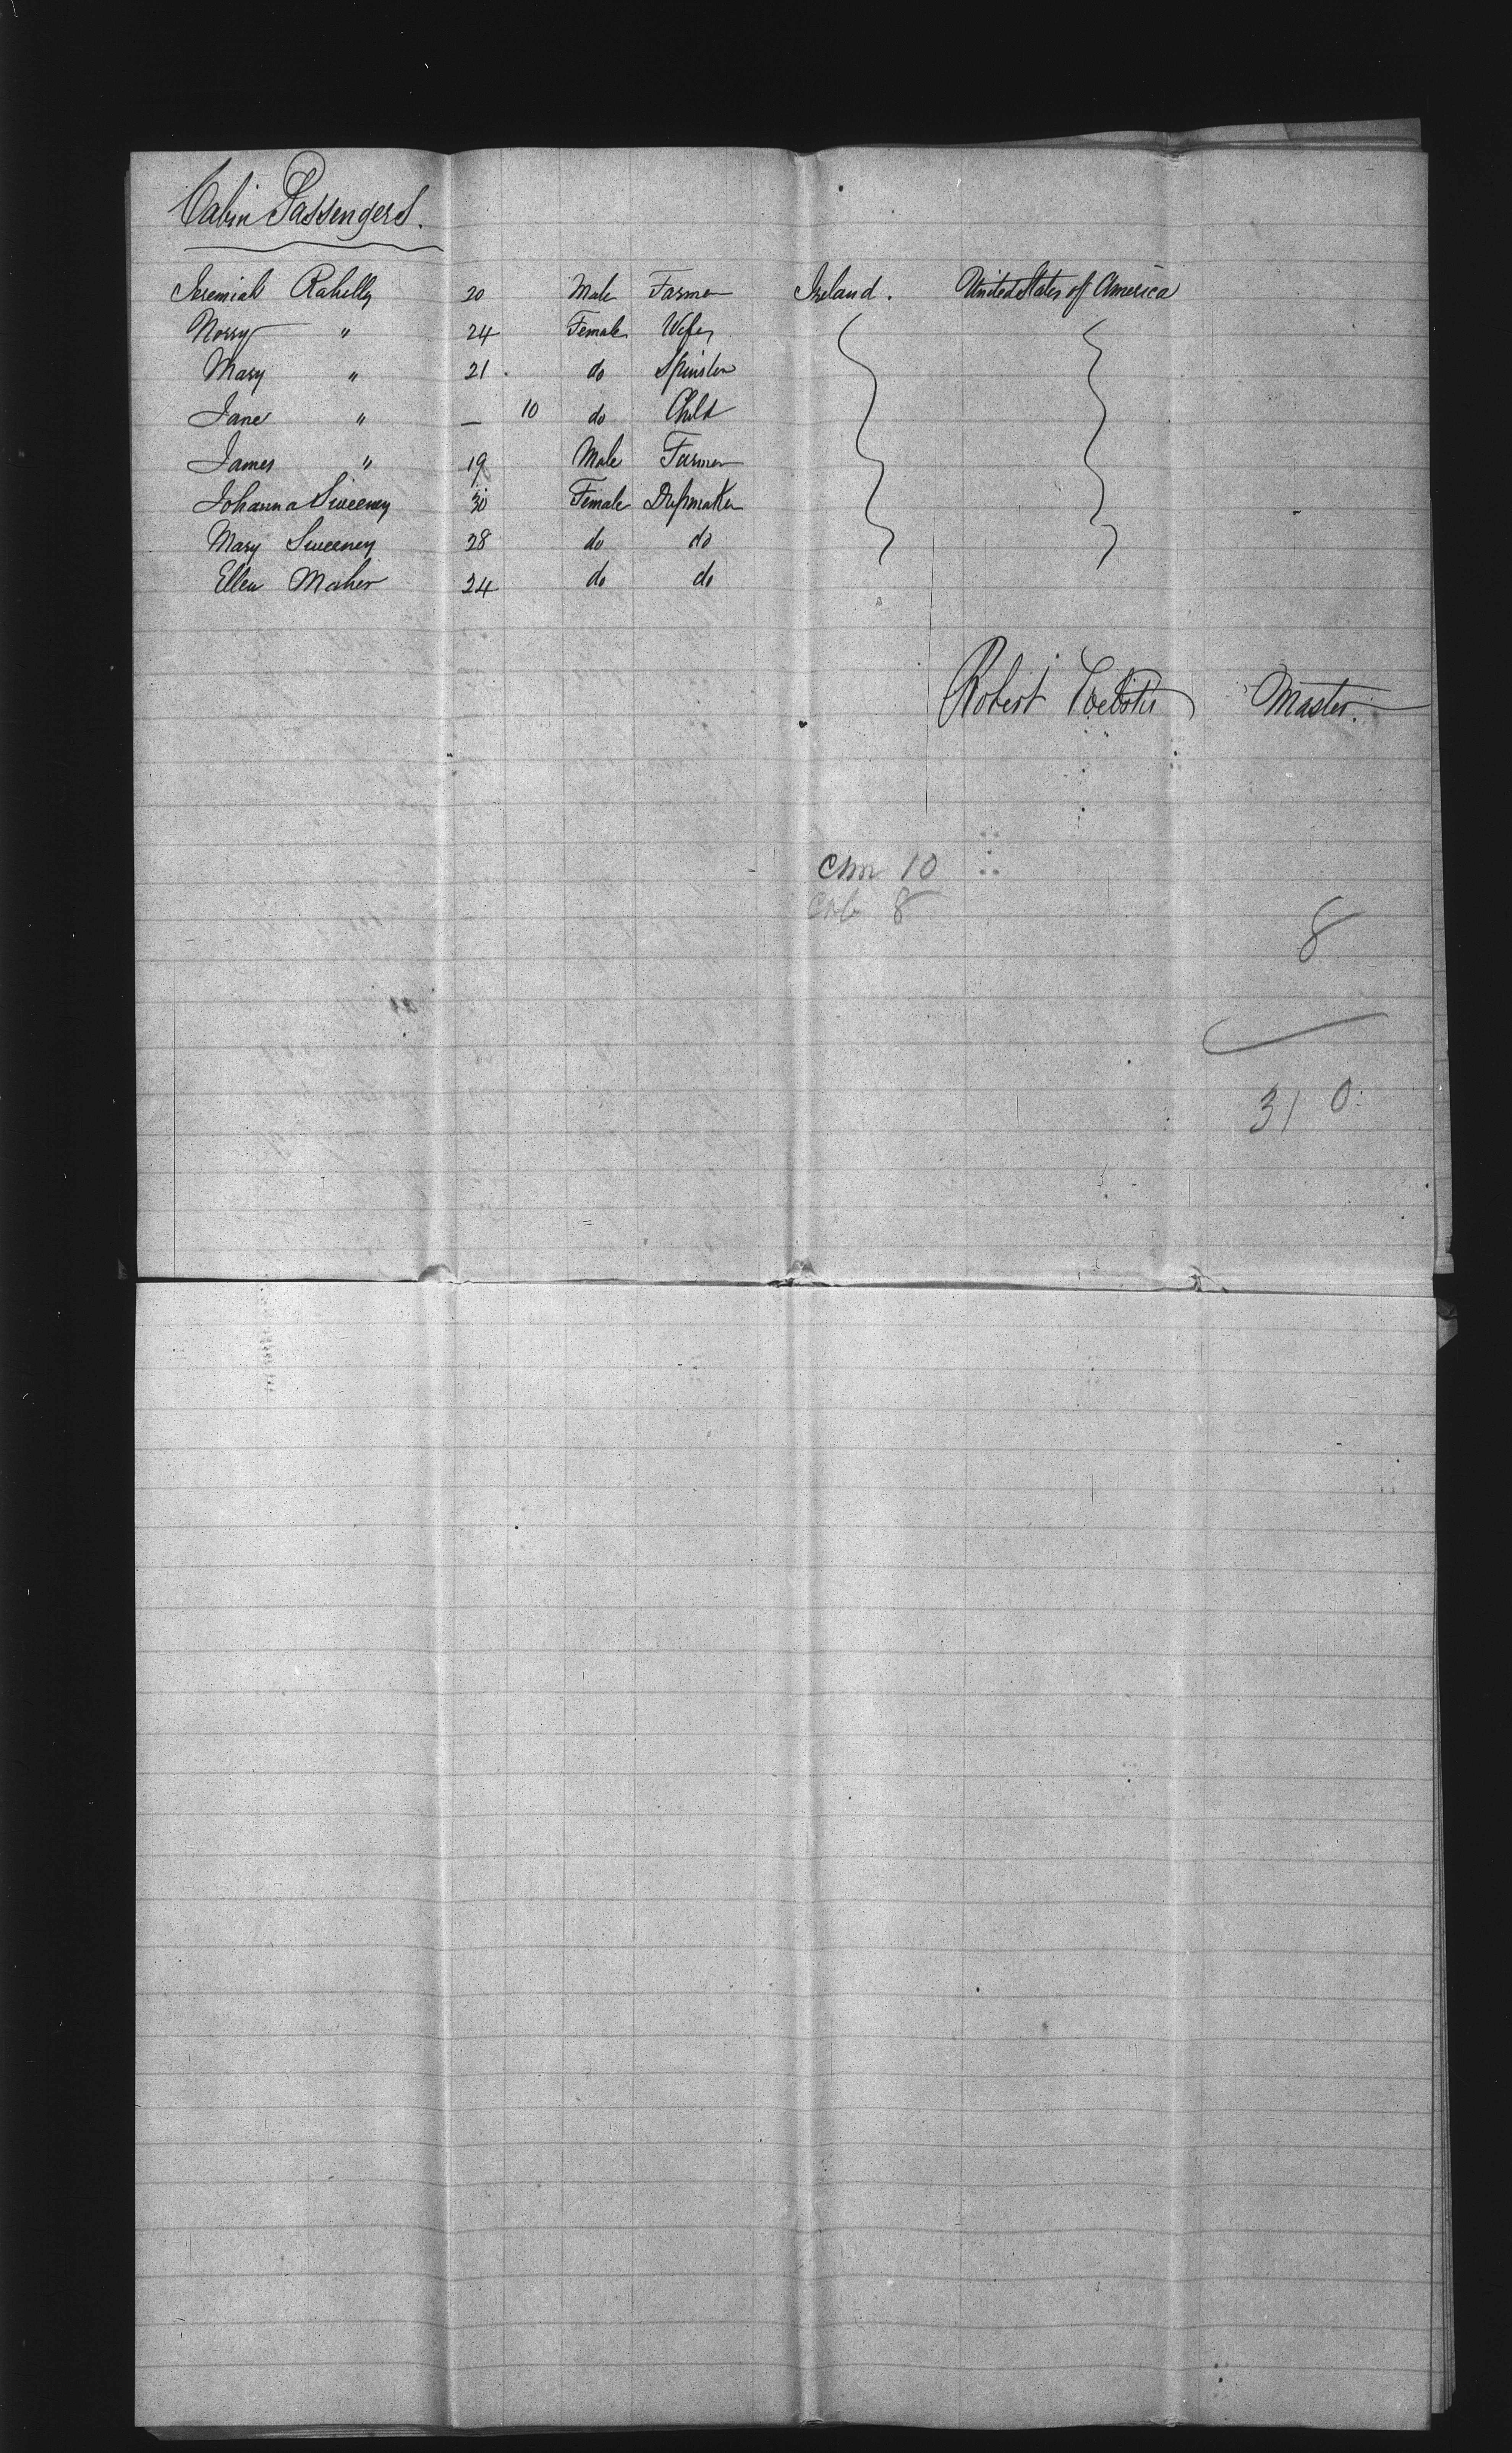 Cabin Passengers.
Jeremiah Rahelly 20 Male Farmer Ireland. United States of America
Norry " 24 Female Wife
Mary " 21. do Spinster
Jane " — 10 do Child
James " 19 Male Farmer
Johanna Sweeney 30 Female Dressmaker
Mary Sweeney 28 do do
Ellen Maher 24 do do
Robert Webster Master.
10
Cab 8
8
31 0